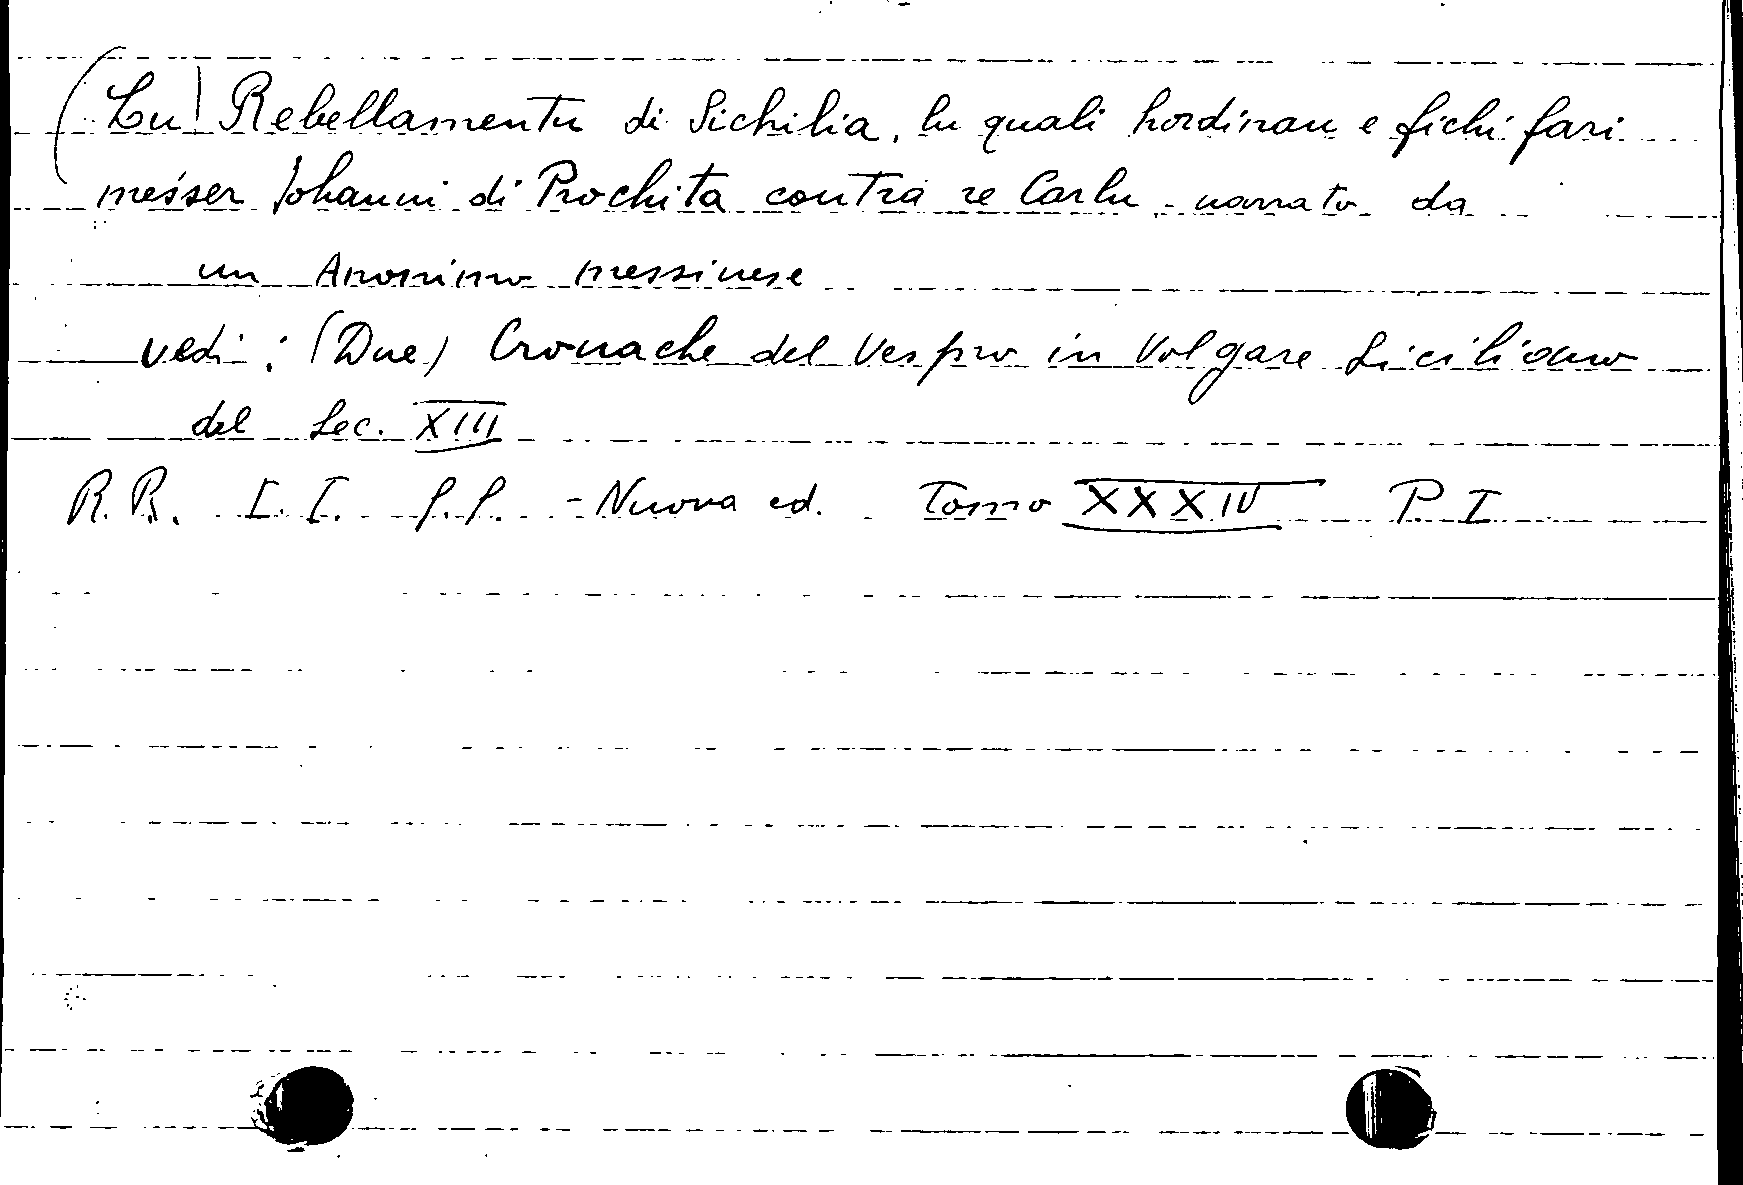 (Lu) Rebellamentu di Sichilia, lu quali hordinau e fichi fari
messer Johanni di Prochita contra re Carlu, narrato da
un Anonimo messinese
vedi: (Due) Cronache del Vespro in Volgare Siciliano
del Sec. XIII
R.R. I.I. S.S. - Nuova ed. Tomo XXXIV P. I